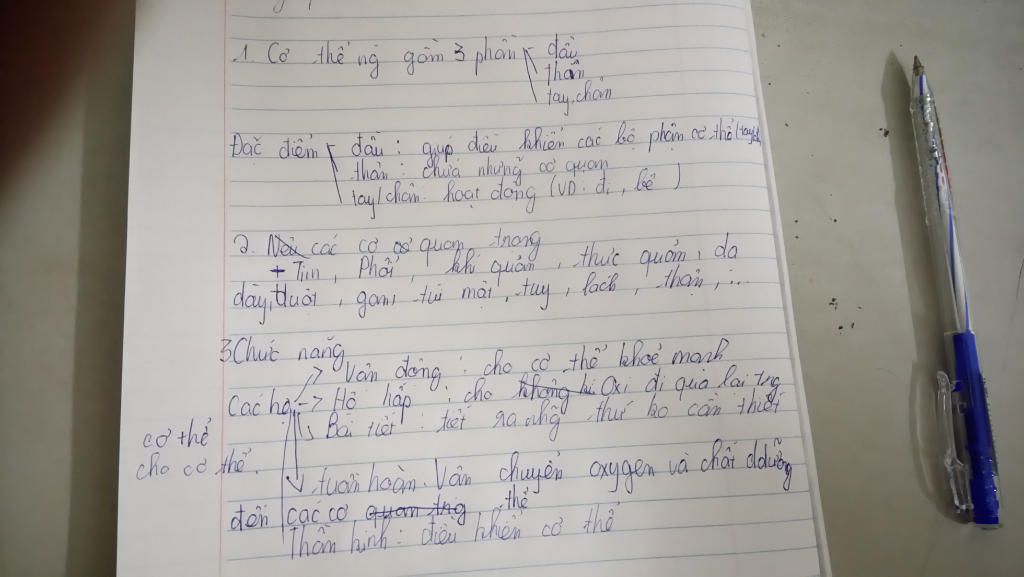 1. Cơ thể ng gồm 3 phần đầu
thân
tay, chân
Đặc điểm đầu : giúp điều khiển các bộ phận cơ thể
thân : chứa những cơ quan
tay/chân : hoạt động (VD : đi, bê)
2. các cơ quan trong
+ Tim, Phổi, khí quản, thực quản, dạ
dày, ruột, gan, túi mật, tuỵ, lách, thận, ...
3 Chức năng
Vận động : cho cơ thể khoẻ mạnh
Các hệ -> Hô hấp : cho không khí Oxi đi qua lại trg
Bài tiết : tiết ra nhg thứ ko cần thiết
cơ thể
cho cơ thể.
tuần hoàn. Vận chuyển oxygen và chất ddưỡng
đến các cơ quan trng thể
Thần kinh : điều khiển cơ thể